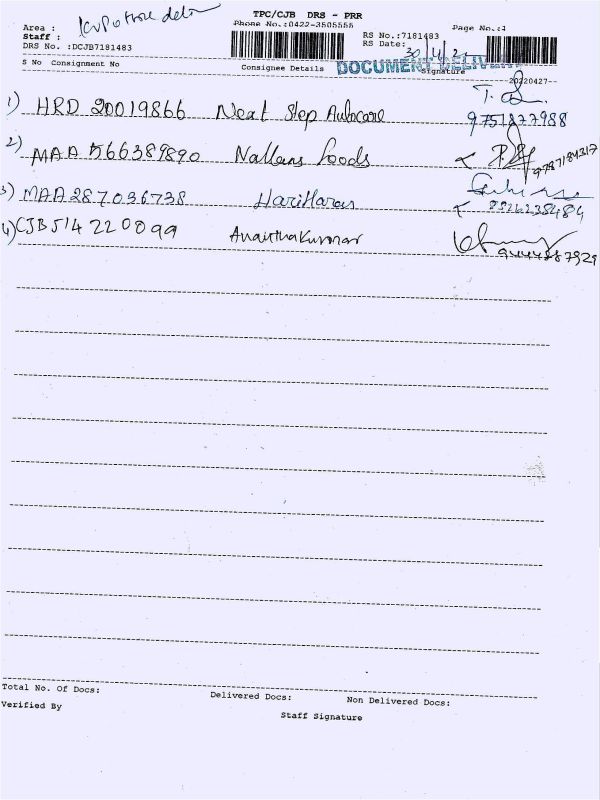 TPC/CJB DRS - PRR
Phone No.:0422-3505555
Page No.:1
Area :
Staff :
DRS No. :DCJB7181483
RS No.:7181483
RS Date: 30/4/22
S No Consignment No Consignee Details Signature
DOCUMENT DELIVERY
20220427--
1) HRD 20019866 Next Step Autocare
9751877988
2) MAA 566389890 Nallans foods
9787184317
3) MAA 287036738 HariHaran
4) CJB 514220099 Ananthakumar
Total No. Of Docs:
Delivered Docs:
Non Delivered Docs:
Verified By
Staff Signature